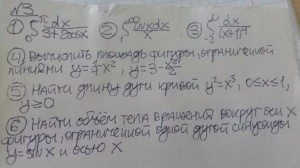 №3
① ∫₀^π dx/(3+2cosx) ② ∫₁^∞ lnxdx/x ③ ∫₋₃^0 dx/(x+1)⁴
④ Вычислить площадь фигуры, ограниченной
линиями y=1/4 x², y=3-x²/2
⑤ Найти длину дуги кривой y²=x³, 0≤x≤1,
y≥0
⑥ Найти объём тела вращения вокруг оси X
фигуры, ограниченной одной дугой синусоиды
y=sin X и осью 0 X